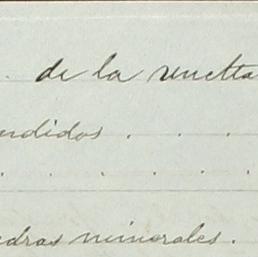 . de la vuelta
ndidos . . .
. . . .
edras minerales.